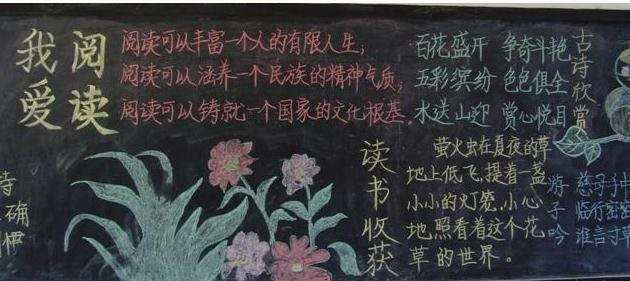 我爱
阅读
阅读可以丰富一个人的有限人生,
阅读可以涵养一个民族的精神气质,
阅读可以铸就一个国家的文化根基.
百花盛开 争奇斗艳
五彩缤纷 色色俱全
水送山迎 赏心悦目
读书收获
萤火虫在夏夜的草
地上低飞,提着一盏
小小的灯笼,小心
地照看着这个花
草的世界。
古诗欣赏
游子吟
慈母手中
临行密密
谁言寸草